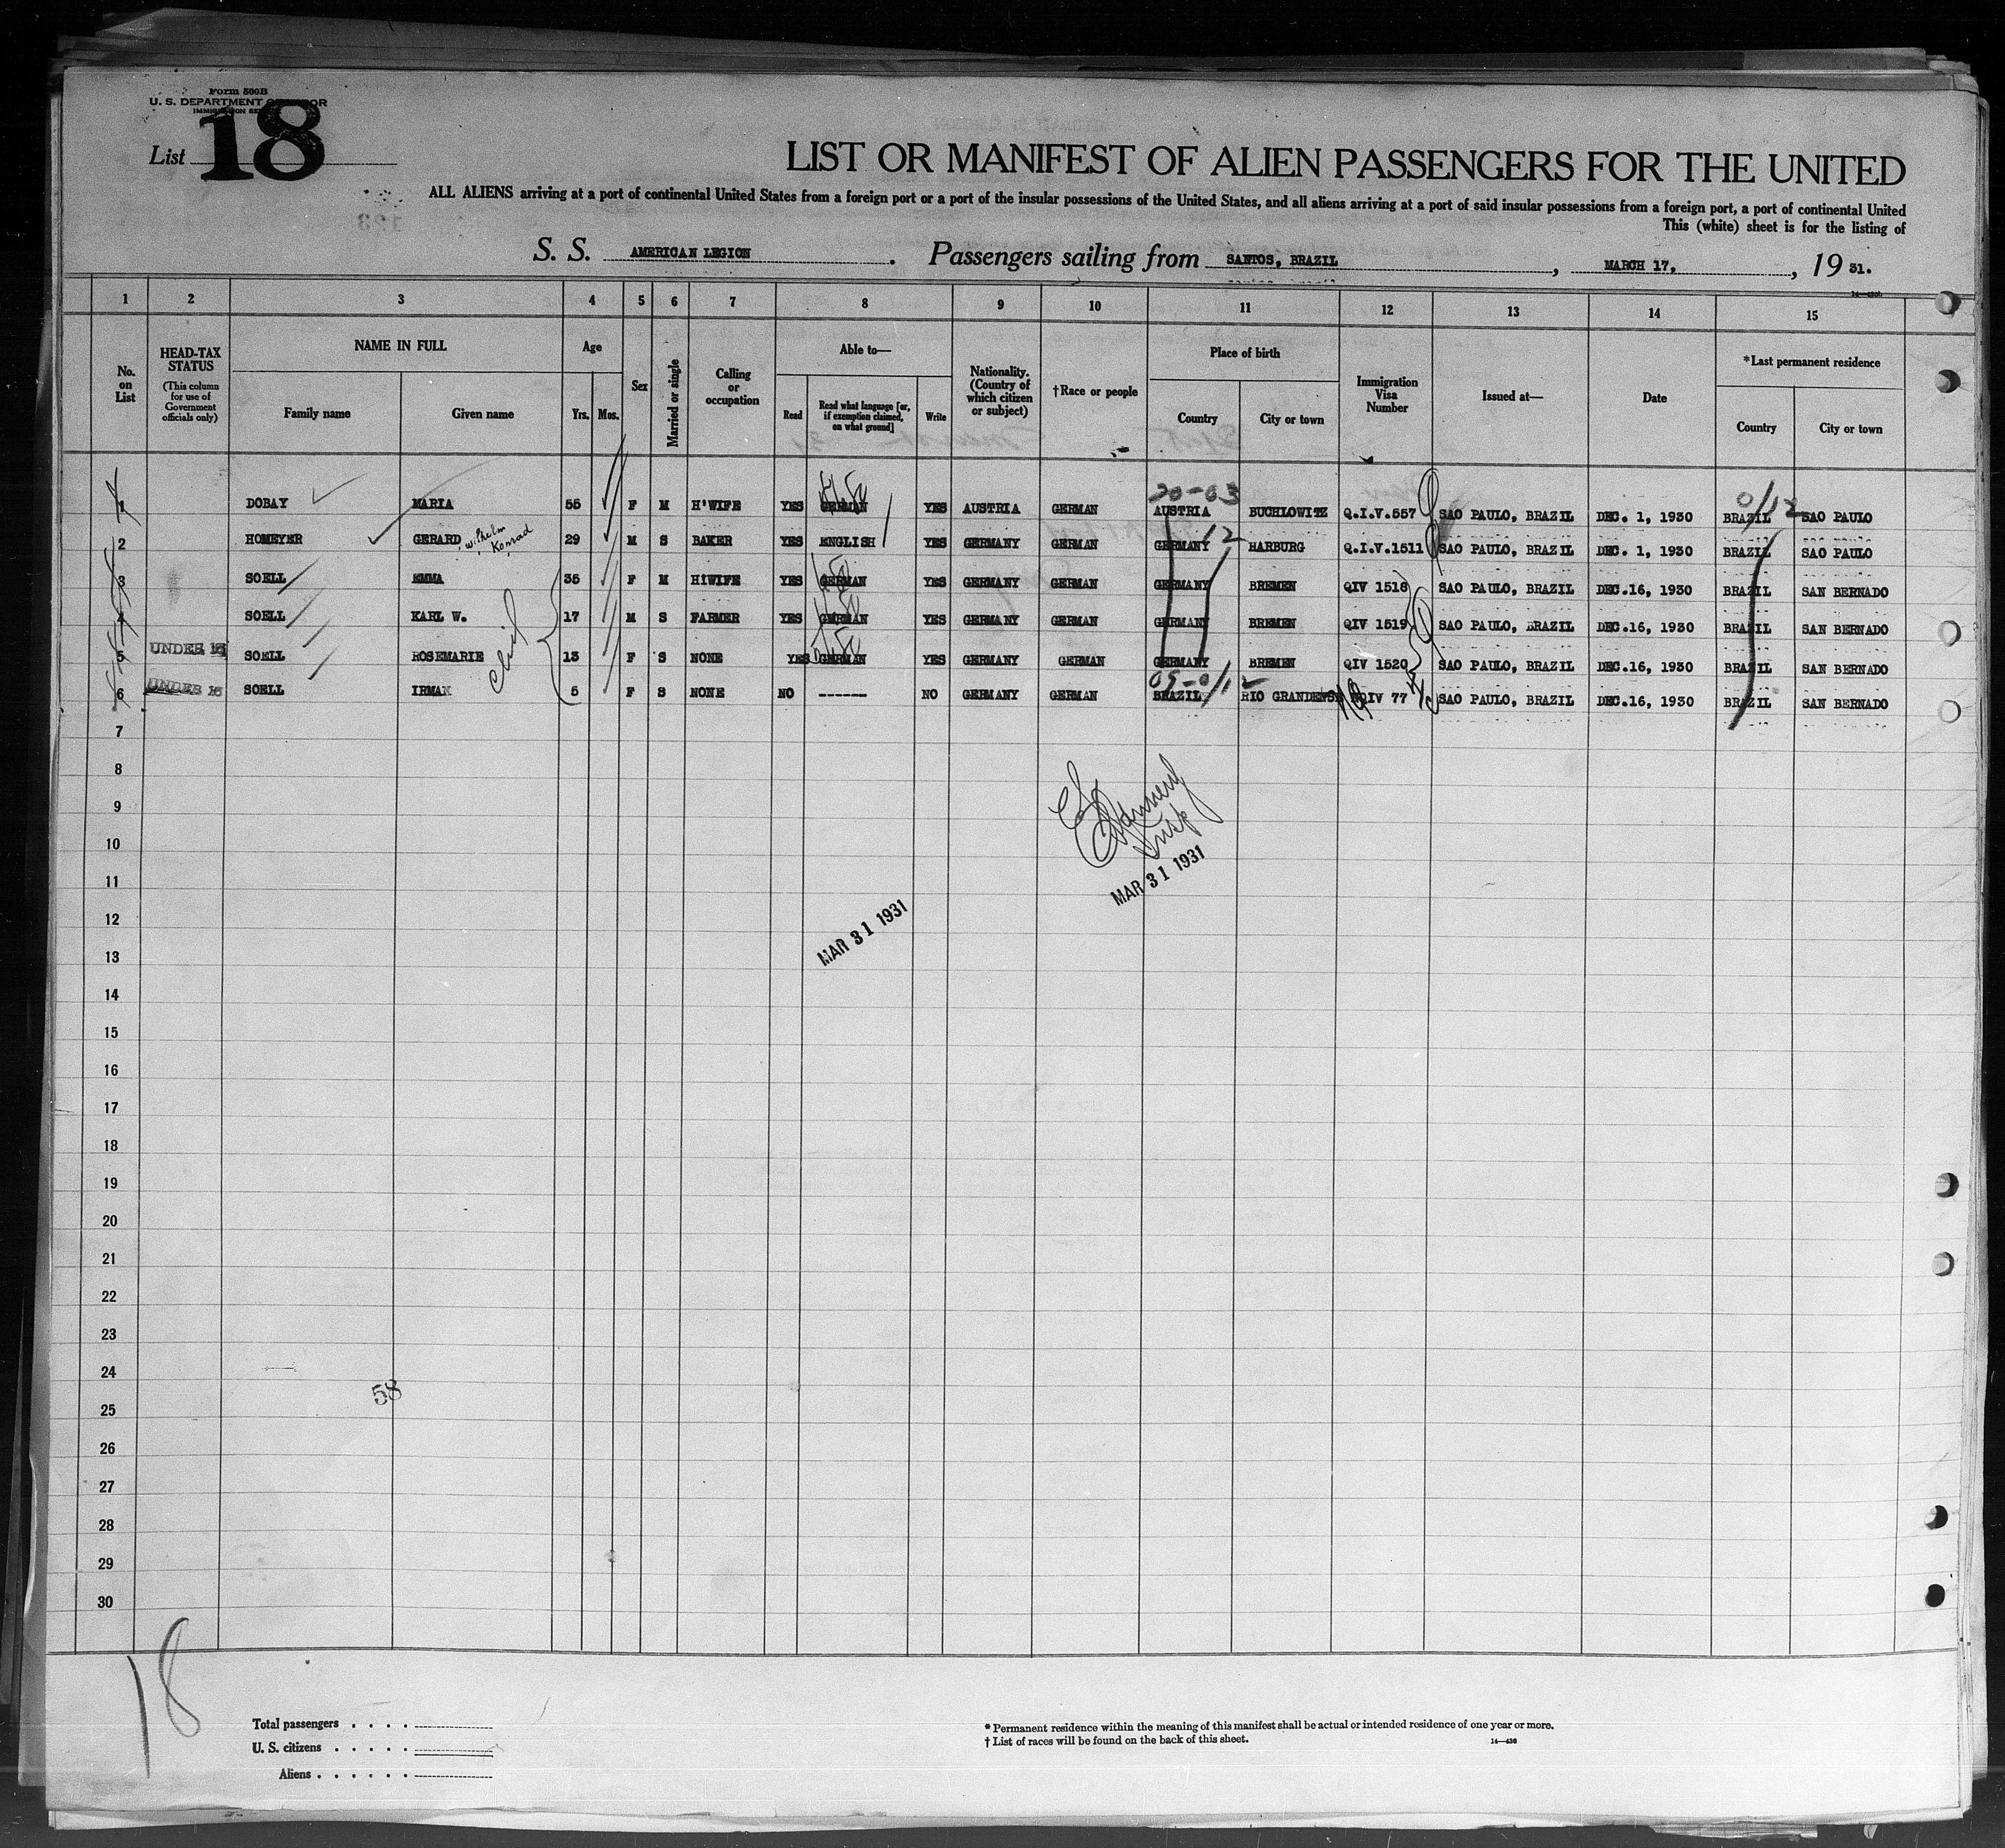 Form 500B
U. S. DEPARTMENT OF LABOR
IMMIGRATION SERVICE
List 18
LIST OR MANIFEST OF ALIEN PASSENGERS FOR THE UNITED
ALL ALIENS arriving at a port of continental United States from a foreign port or a port of the insular possessions of the United States, and all aliens arriving at a port of said insular possessions from a foreign port, a port of continental United
This (white) sheet is for the listing of
S. S. AMERICAN LEGION . Passengers sailing from SANTOS, BRAZIL , MARCH 17, , 19 31.
1 2 3 4 5 6 7 8 9 10 11 12 13 14 15
No. on List
HEAD-TAX STATUS (This column for use of Government officials only)
NAME IN FULL
Family name Given name
Age
Yrs. Mos.
Sex
Married or single
Calling or occupation
Able to—
Read Read what language [or, if exemption claimed, on what ground] Write
Nationality. (Country of which citizen or subject)
†Race or people
Place of birth
Country City or town
Immigration Visa Number
Issued at—
Date
*Last permanent residence
Country City or town
20-03 0/12
1 DOBAY MARIA 55 F M H'WIFE YES GERMAN YES AUSTRIA GERMAN AUSTRIA BUCHLOWITZ Q.I.V.557 SAO PAULO, BRAZIL DEC. 1, 1930 BRAZIL SAO PAULO
2 HOMEYER GERARD Wilhelm Konrad 29 M S BAKER YES ENGLISH YES GERMANY GERMAN GERMANY 12 HARBURG Q.I.V.1511 SAO PAULO, BRAZIL DEC. 1, 1930 BRAZIL SAO PAULO
3 SOELL EMMA 35 F M H'WIFE YES GERMAN YES GERMANY GERMAN GERMANY BREMEN QIV 1518 SAO PAULO, BRAZIL DEC.16, 1930 BRAZIL SAN BERNADO
4 SOELL KARL W. 17 M S FARMER YES GERMAN YES GERMANY GERMAN GERMANY BREMEN QIV 1519 SAO PAULO, BRAZIL DEC.16, 1930 BRAZIL SAN BERNADO
5 UNDER 16 SOELL ROSEMARIE 13 F S NONE YES GERMAN YES GERMANY GERMAN GERMANY BREMEN QIV 1520 SAO PAULO, BRAZIL DEC.16, 1930 BRAZIL SAN BERNADO
09-0/12
6 UNDER 16 SOELL IRMA 5 F S NONE NO ------ NO GERMANY GERMAN BRAZIL RIO GRANDENSE NQIV 77 SAO PAULO, BRAZIL DEC.16, 1930 BRAZIL SAN BERNADO
7
8
9
10
11
Insp
MAR 31 1931
12
MAR 31 1931
13
14
15
16
17
18
19
20
21
22
23
24
58
25
26
27
28
29
30
18
Total passengers . . . .
U. S. citizens . . . . .
Aliens . . . . . .
* Permanent residence within the meaning of this manifest shall be actual or intended residence of one year or more.
† List of races will be found on the back of this sheet.
14—430